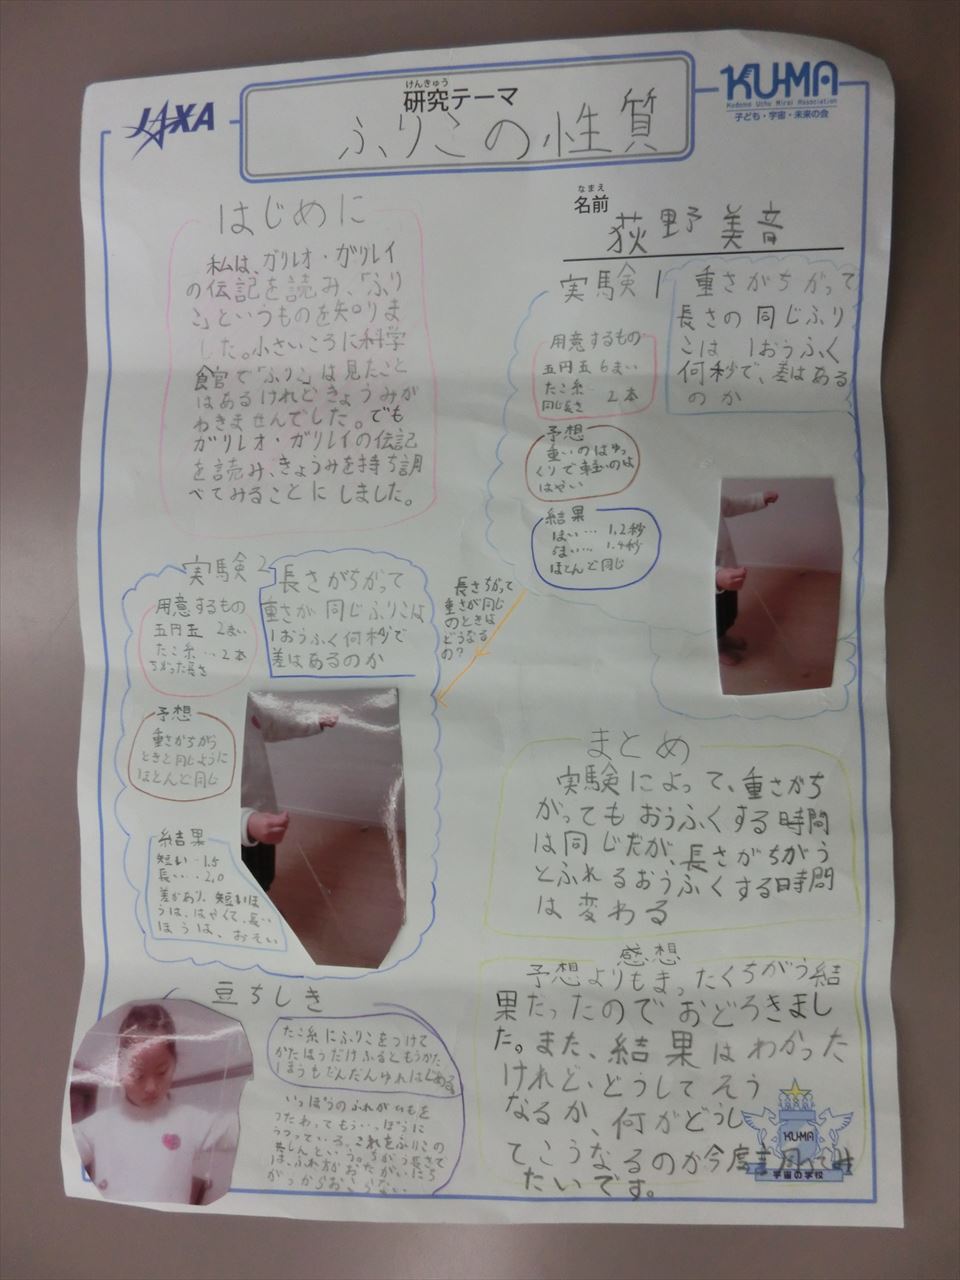 JAXA
けんきゅう
研究テーマ
ふりこの性質
KU-MA
Kodomo Uchu Mirai Association
子ども・宇宙・未来の会
なまえ
名前
荻野美音
はじめに
私は、ガリレオ・ガリレイ
の伝記を読み、「ふり
こ」というものを知りま
した。小さいころに科学
館で「ふりこ」は見たこと
はあるけれどきょうみが
わきませんでした。でも
ガリレオ・ガリレイの伝記
を読み、きょうみを持ち調
べてみることにしました。
実験1
重さがちがって
長さの同じふり
こは 1おうふく
何秒で、差はある
のか
用意するもの
五円玉 6まい
たこ糸… 2本
同じ長さ
予想
重いのはゆっ
くりで軽いのは
はやい
結果
1.2秒
1.4秒
ほとんど同じ
長さちがって
重さが同じ
のときは
どうなる
の?
実験2
長さがちがって
重さが同じふりこは
1おうふく何秒で
差はあるのか
用意するもの
五円玉 2まい
たこ糸…2本
ちがった長さ
予想
重さがちがう
ときと同じように
ほとんど同じ
結果
短い…1.5
長い…2.0
差があり、短いほ
うは、はやくて、長い
ほうは、おそい
まとめ
実験によって、重さがち
がってもおうふくする時間
は同じだが、長さがちがう
とふれるおうふくする時間
は変わる
感想
予想よりもまったくちがう結
果だったのでおどろきまし
た。また、結果はわかった
けれど、どうしてそう
なるか、何がどうし
てこうなるのか今度調べてみ
たいです。
豆ちしき
たこ糸にふりこをつけて
かたほうだけふるともうかた
ほうもだんだんゆれはじめる。
いっぽうのふれがひもを
つたわってもう一っぽうに
うつっている。これをふりこの
共しんという。ちがう長さで
は、ふれ方がおたがいにち
がうからおこらない
KU-MA
宇宙の学校